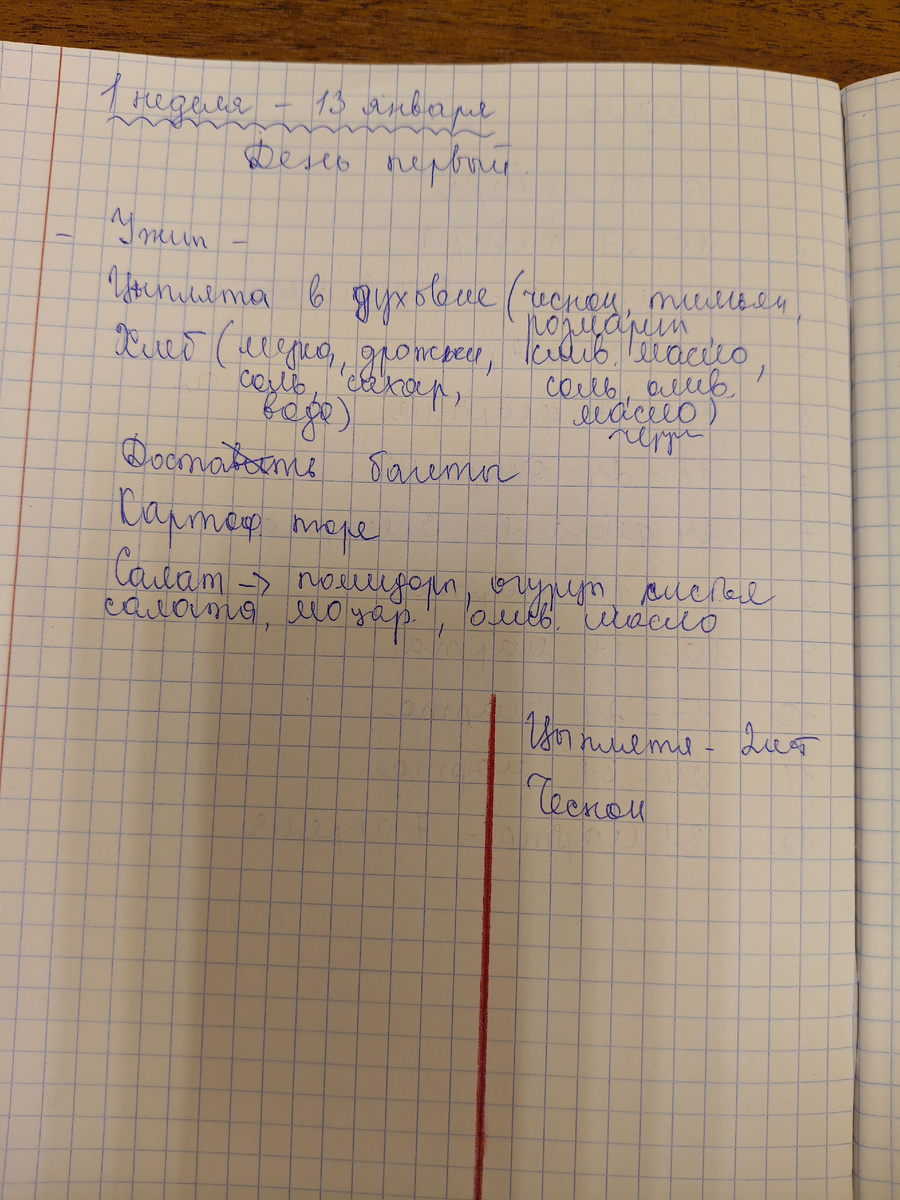 1 неделя - 13 января
День первый.
- Ужин -
Цыплята в духовке (чеснок, тимьян,
розмарин
Хлеб (мука, дрожжи, слив. масло,
соль, сахар, соль, олив.
вода) масло)
перец
Достать багеты
Картоф. пюре
Салат → помидоры, огурцы листья
салата, моцар., олив. масло
Цыплята - 2шт
Чеснок